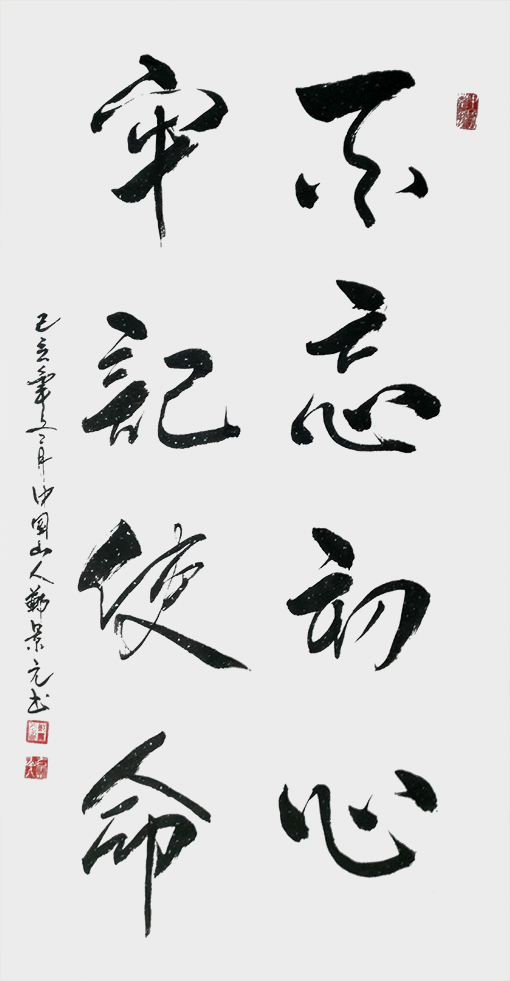 不忘初心
牢記使命
己亥年之三月中国山人勤景元书